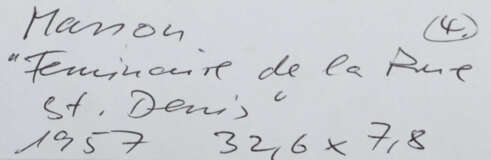 Masson (4.)
"Feminaire de la Rue
St. Denis"
1957 32,6 x 7,8